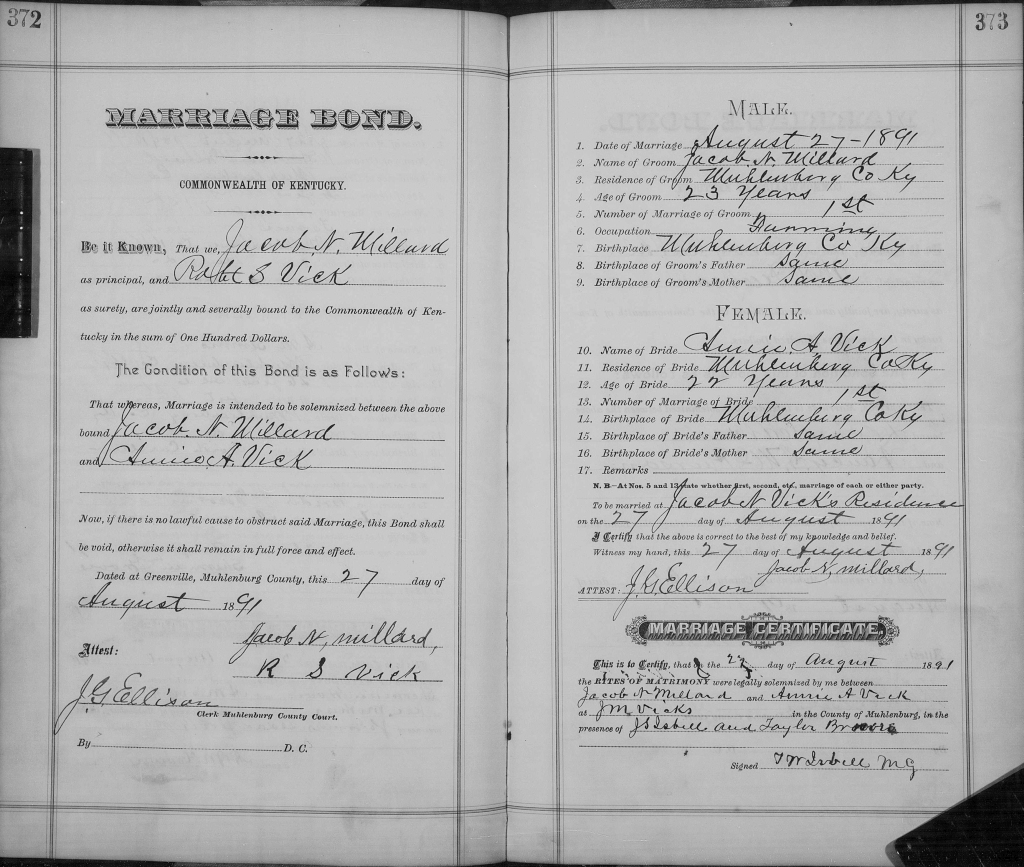 372
MARRIAGE BOND.
COMMONWEALTH OF KENTUCKY.
Be it Known, That we, Jacob. N. Millard
as principal, and Robt S Vick
as surety, are jointly and severally bound to the Commonwealth of Ken-
tucky in the sum of One Hundred Dollars.
The Condition of this Bond is as Follows:
That whereas, Marriage is intended to be solemnized between the above
bound Jacob. N. Millard
and Annie A. Vick
Now, if there is no lawful cause to obstruct said Marriage, this Bond shall
be void, otherwise it shall remain in full force and effect.
Dated at Greenville, Muhlenburg County, this 27 day of
August 1891
Jacob N, millard,
Attest:
R S Vick
J. G Ellison
Clerk Muhlenburg County Court.
By D. C.
373
MALE.
1. Date of Marriage August 27-1891
2. Name of Groom Jacob. N. Millard
3. Residence of Groom Muhlenburg Co Ky
4. Age of Groom 23 Years
5. Number of Marriage of Groom 1st
6. Occupation Farming
7. Birthplace Muhlenburg Co Ky
8. Birthplace of Groom's Father Same
9. Birthplace of Groom's Mother Same
FEMALE.
10. Name of Bride Annie. A Vick
11. Residence of Bride Muhlenburg Co Ky
12. Age of Bride 22 Years
13. Number of Marriage of Bride 1st
14. Birthplace of Bride Muhlenburg Co Ky
15. Birthplace of Bride's Father Same
16. Birthplace of Bride's Mother Same
17. Remarks
N. B—At Nos. 5 and 13 state whether first, second, etc., marriage of each or either party.
To be married at Jacob N Vick's Residence
on the 27 day of August 1891
I Certify that the above is correct to the best of my knowledge and belief.
Witness my hand, this 27 day of August 1891
Jacob N, millard,
ATTEST: J. G Ellison
MARRIAGE CERTIFICATE.
This is to Certify, that on the 27 day of August 1891
the RITES OF MATRIMONY were legally solemnized by me between
Jacob N Millard and Annie A Vick
at J M Vicks in the County of Muhlenburg, in the
presence of J S Isbell and Taylor
Signed T W Isbell M G